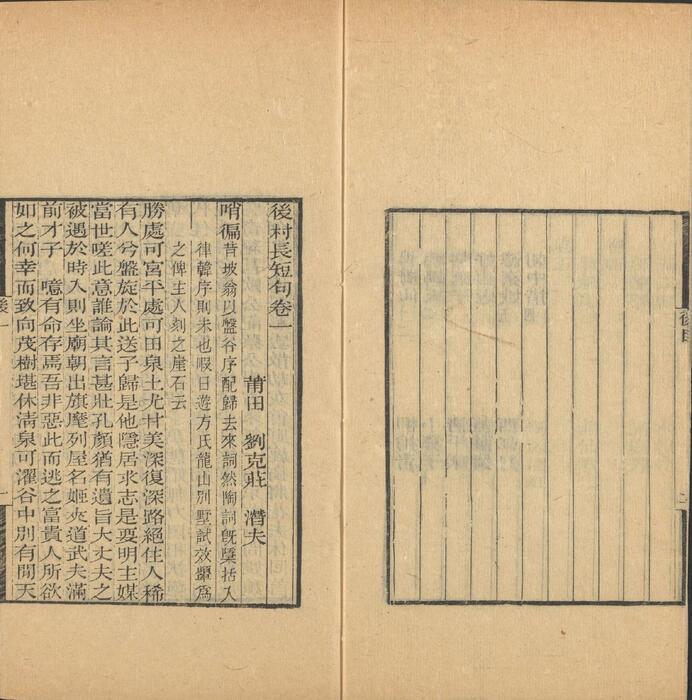 後目
二
後村長短句卷一
莆田 劉克莊 潛夫
哨徧 昔坡翁以盤谷序配歸去來詞然陶詞旣櫽括入
律韓序則未也暇日遊方氏龍山別墅試效顰爲
之俾主人刻之崖石云
勝處可宮平處可田泉土尤甘美深復深路絕住人稀
有人兮盤旋於此送子歸是他隱居求志是要明主媒
當世嗟此意誰論其言甚壯孔顏猶有遺旨大丈夫之
被遇於時入則坐廟朝出旗麾列屋名姬夾道武夫滿
前才子 噫有命存焉吾非惡此而逃之富貴人所欲
如之何幸而致向茂樹堪休淸泉可濯谷中別有閒天
後一
一